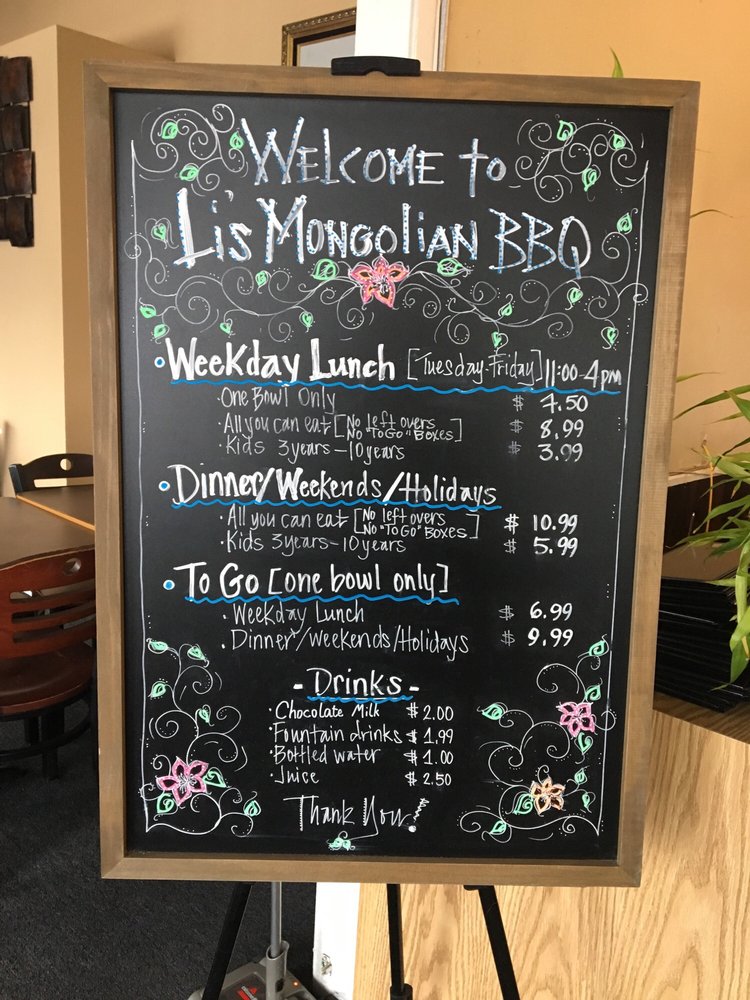 Welcome to
Li's Mongolian BBQ
• Weekday Lunch [Tuesday-Friday] 11:00-4pm
· One Bowl Only $ 7.50
· All you can eat [No left overs No "To Go" Boxes] $ 8.99
· Kids 3years-10years $ 3.99
• Dinner/Weekends/Holidays
· All you can eat [No left overs No "To Go" Boxes] $ 10.99
· Kids 3years-10years $ 5.99
• To Go [one bowl only]
· Weekday Lunch $ 6.99
· Dinner/Weekends/Holidays $ 9.99
- Drinks -
· Chocolate Milk $ 2.00
· Fountain drinks $ 1.99
· Bottled water $ 1.00
· Juice $ 2.50
Thank You!